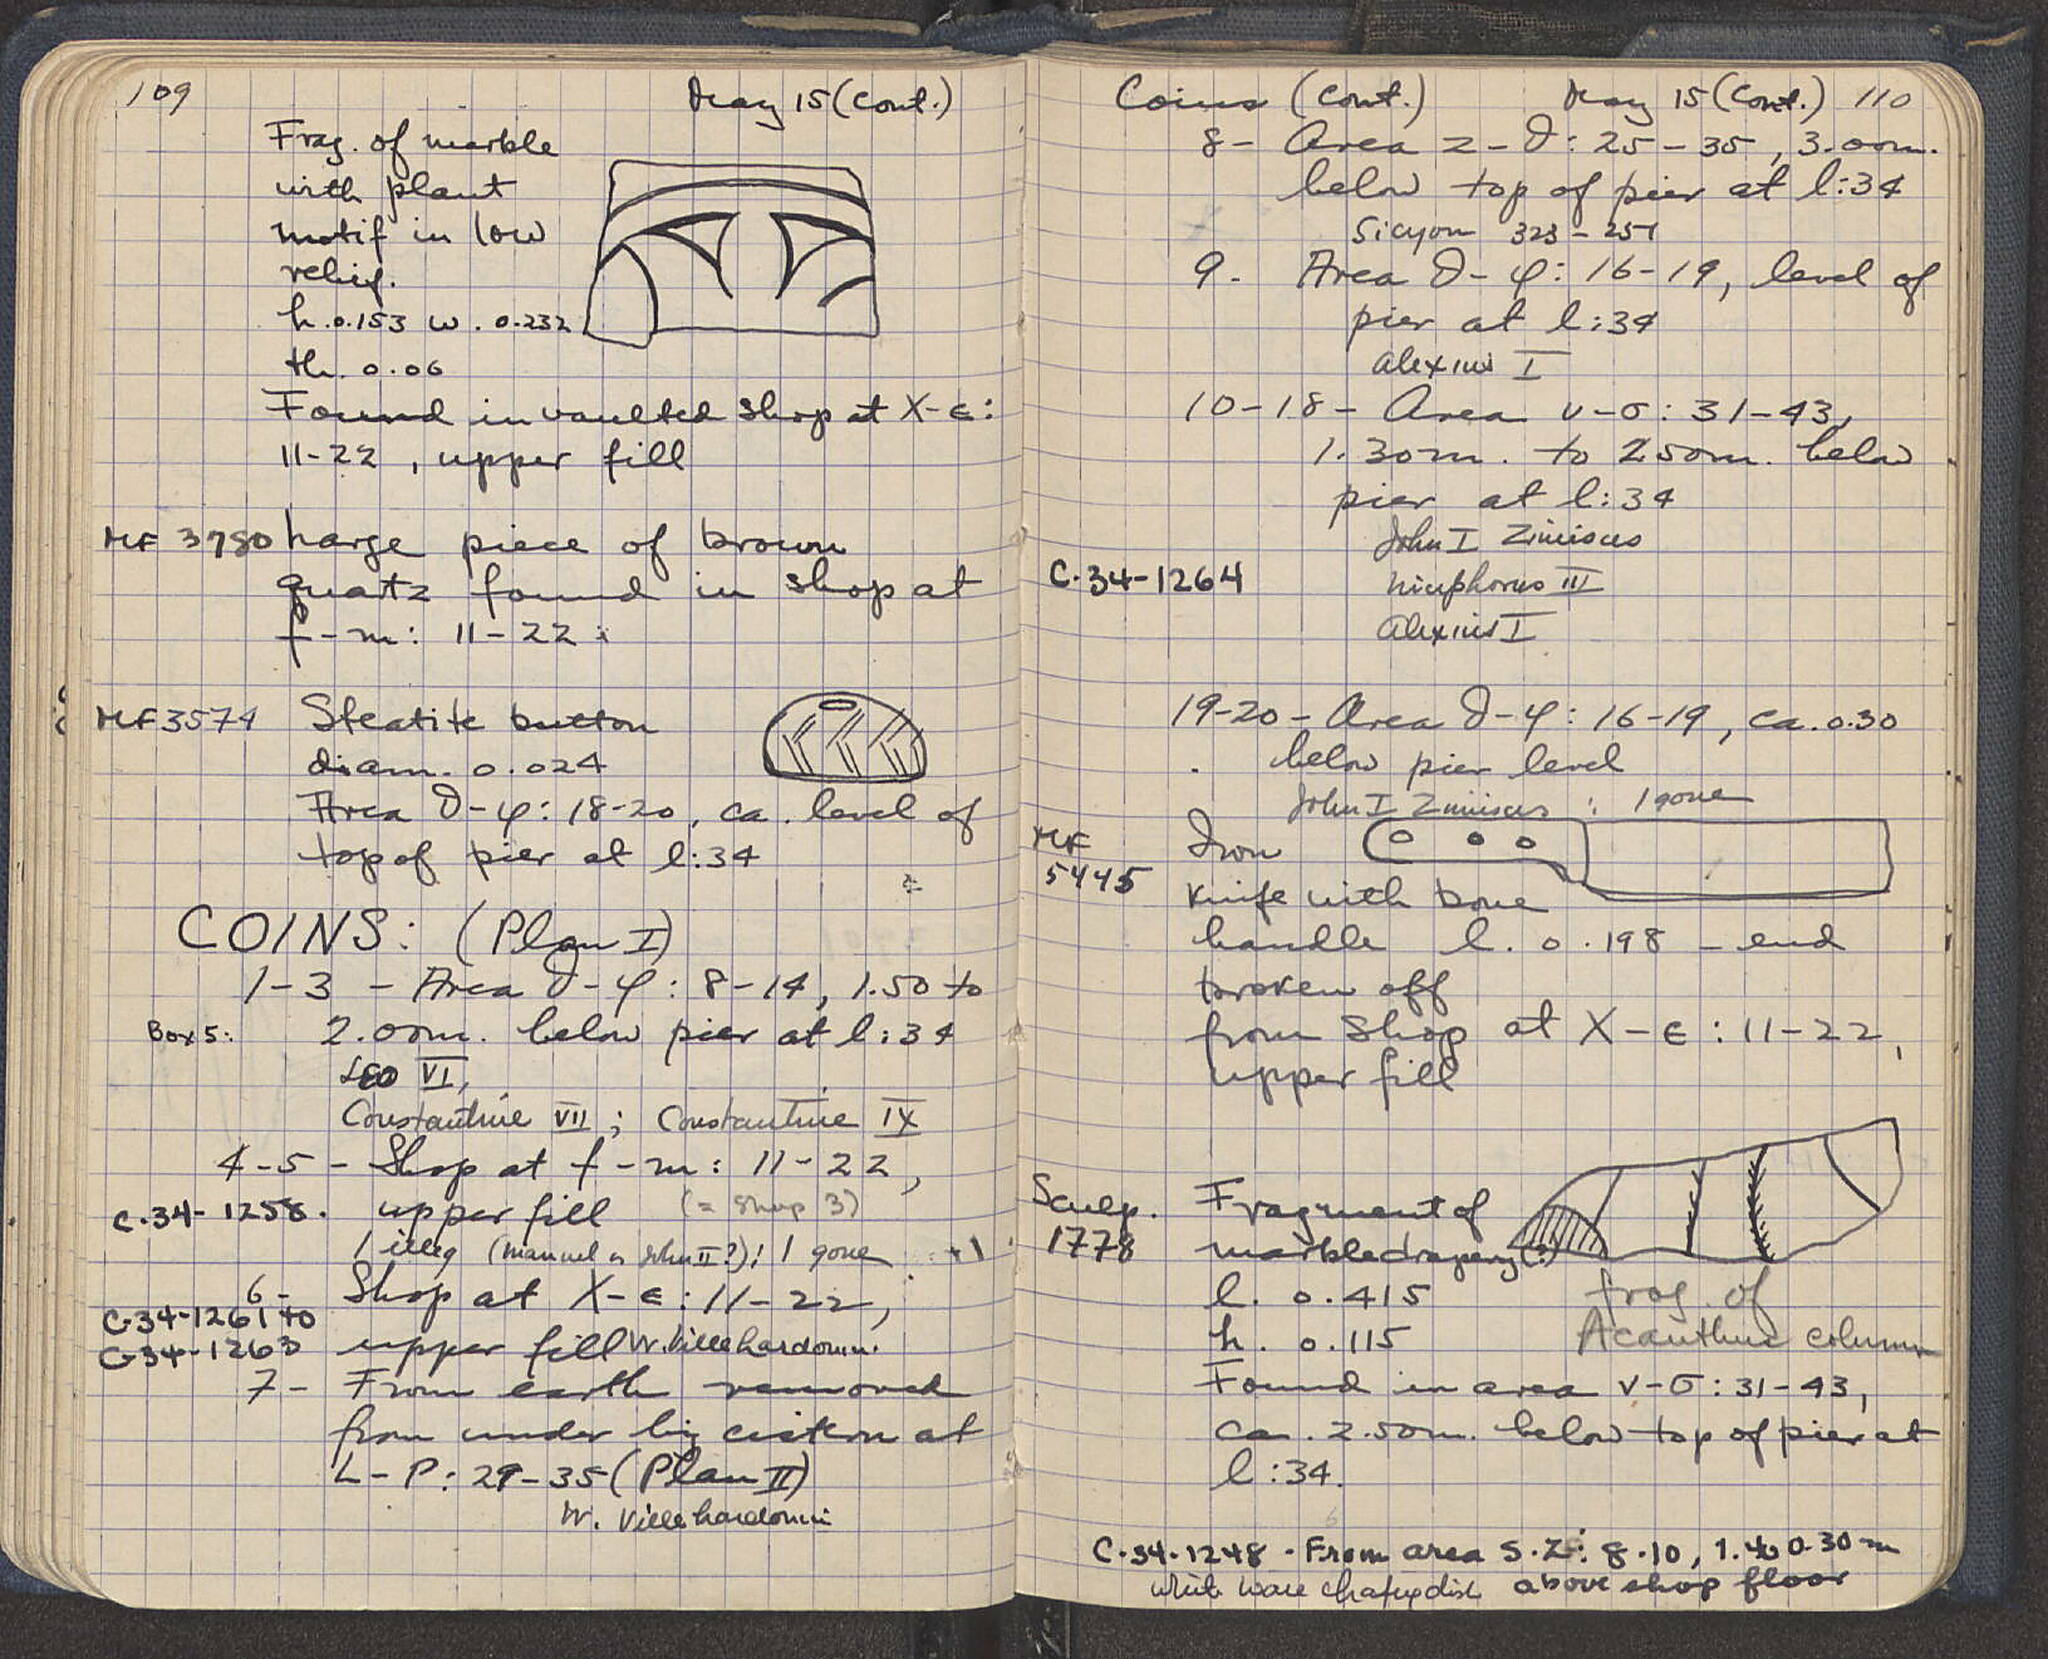 109 May 15 (Cont.)
Frag. of marble
with plant
motif in low
relief.
h. 0.153 w. 0.232
th. 0.06
Found in vaulted shop at X-ε:
11-22, upper fill
MF 3780 Large piece of brown
quartz found in shop at
f-m: 11-22
MF 3574 Steatite button
diam. 0.024
Area ϑ-φ: 18-20, ca. level of
top of pier at l:34
COINS: (Plan I)
1-3 - Area ϑ-φ: 8-14, 1.50 to
Box 5: 2.00m. below pier at l:34
Leo VI,
Constantine VII; Constantine IX
4-5 - Shop at f-m: 11-22,
C-34-1258. upper fill (= Shop 3)
1 illeg (Manuel or John II?); 1 gone +1
6- Shop at X-ε: 11-22,
C-34-1261 to
C-34-1263 upper fill W. Villehardouin.
7- From earth removed
from under big cistern at
L-P: 29-35 (Plan II)
W. Villehardouin
Coins (Cont.) May 15 (Cont.) 110
8- Area z-ϑ: 25-35, 3.00m.
below top of pier at l:34
Sicyon 323-251
9. Area ϑ-φ: 16-19, level of
pier at l:34
Alexius I
10-18- Area ν-σ: 31-43,
1.30m. to 2.50m. below
pier at l:34
John I Zimisces
C-34-1264 Nicephorus III
Alexius I
19-20- Area ϑ-φ: 16-19, ca. 0.30
below pier level
John I Zimisces; 1 gone
MF
5445
Iron
knife with bone
handle l. 0.198 - end
broken off
from Shop at X-ε: 11-22,
upper fill
Sculp.
1778
Fragment of
marble drapery (?)
l. 0.415 frag. of
h. 0.115 Acanthus column
Found in area ν-σ: 31-43,
ca. 2.50m. below top of pier at
l:34.
C-34-1248 - From area S-Z: 8-10, 1. to 0.30 m
white ware chafing dish above shop floor